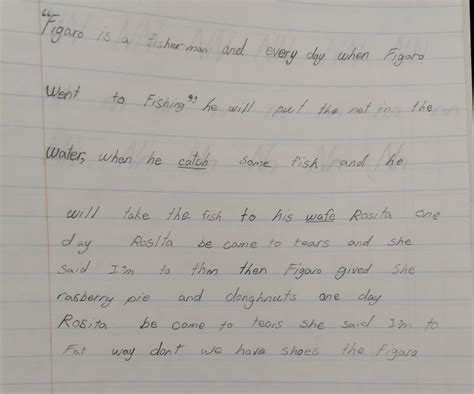 “Figaro is a fisherman and every day when Figaro
Went to Fishing” he will put the net in the
Water, when he catch some fish and he
will take the fish to his wafe Rosita one
day Rosita be came to tears and she
said I'm to thm then Figaro gived she
rasberry pie and doughnuts one day
Rosita be came to tears she said I'm to
Fat way dont we have shoes the Figaro